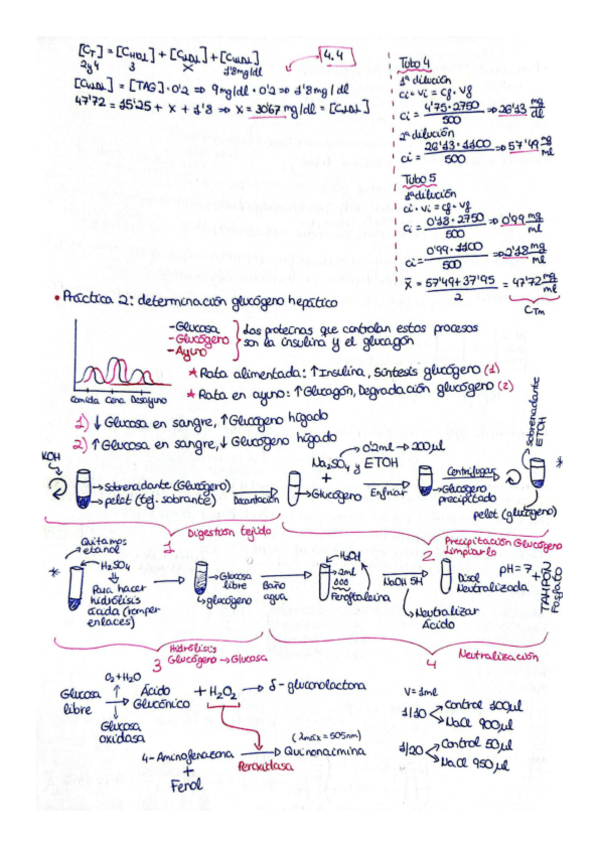 [CT] = [CHDL] + [CLDL] + [CVLDL]
2y4 3 X 1'8mg/dl
4.4
[CVLDL] = [TAG] · 0'2 ⇒ 9mg/dl · 0'2 ⇒ 1'8mg/dl
47'72 = 15'25 + x + 1'8 ⇒ x = 30'67 mg/dl = [CLDL]
Tubo 4
1ª dilución
ci · vi = cf · vf
ci = 4'75 · 2750 / 500 ⇒ 26'13 mg/dl
2ª dilución
ci = 26'13 · 1100 / 500 ⇒ 57'49 mg/ml
Tubo 5
1ª dilución
ci · vi = cf · vf
ci = 0'18 · 2750 / 500 ⇒ 0'99 mg/ml
ci = 0'99 · 1100 / 500 ⇒ 2'18 mg/ml
x̄ = 57'49 + 37'95 / 2 = 47'72 mg/ml
CTm
• Práctica 2: determinación glucógeno hepático
- Glucosa
- Glucógeno
- Ayuno
Las proteínas que controlan estos procesos
son la insulina y el glucagón
Comida Cena Desayuno
* Rata alimentada: ↑Insulina, Síntesis glucógeno (1)
* Rata en ayuno: ↑Glucagón, Degradación glucógeno (2)
1) ↓ Glucosa en sangre, ↑ Glucógeno hígado
2) ↑ Glucosa en sangre, ↓ Glucógeno hígado
KOH
→ sobrenadante (Glucógeno)
→ pelet (tej. sobrante)
Decantación
→ 0'2ml → 200µl
Na2SO4 y ETOH
+
→ Glucógeno
Enfriar
Centrifugar
→ Glucógeno
precipitado
sobrenadante
ETOH
*
pelet (glucógeno)
Digestión tejido
1
2
Precipitación Glucógeno
Limpiarlo
*
Quitamos
etanol
H2SO4
Para hacer
hidrólisis
ácida (romper
enlaces)
→ Glucosa
libre
→ glucógeno
Baño
agua
H2OH
→ 2ml
Fenoftaleína
NaOH 5M
→ Neutralizar
Ácido
Disol
Neutralizada
pH = 7
+
TAMPÓN
Fosfato
3
Hidrólisis
Glucógeno → Glucosa
4
Neutralización
O2 + H2O
Glucosa
libre
Ácido
Glucónico
+ H2O2 → δ - gluconolactona
Glucosa
oxidasa
4-Aminofenazona
+
Fenol
Peroxidasa
(λmáx = 505nm)
Quinonaimina
V = 1ml
1/10
Control 100µl
NaCl 900µl
1/20
Control 50µl
NaCl 950µl